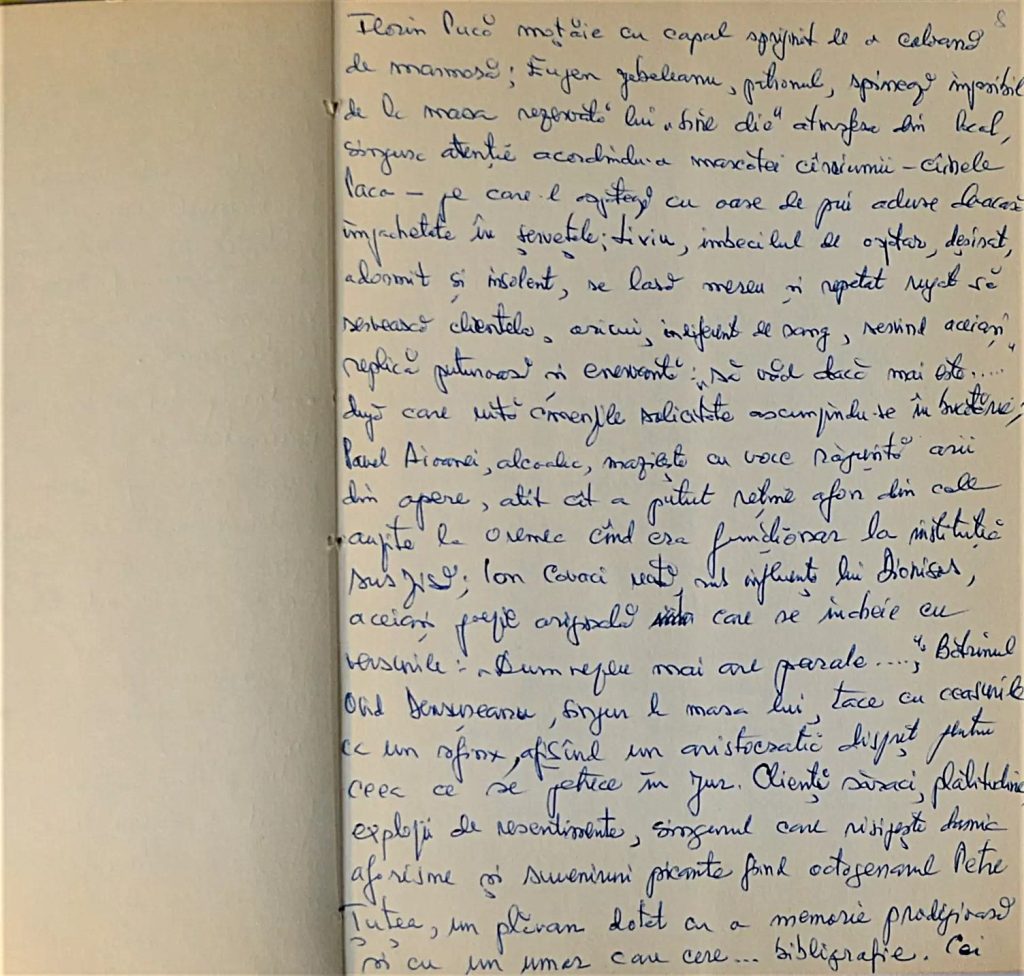 8
Florin Pucă moțăie cu capul sprijinit de o coloană
de marmoră; Eugen Jebeleanu, pitionul, spionează impasibil
de la masa rezervată lui „sine die" atmosfera din local,
singura atenție acordîndu-o mascotei cîrciumii – cîinele
Paca – pe care-l ospătează cu oase de pui aduse de-acasă
împachetate în șervețele; Liviu, imbecilul de ospătar, deșirat,
adormit și insolent, se lasă mereu și repetat rugat să
servească clientela, oricui, indiferent de rang, servind aceiași
replică puturoasă și enervantă: „să văd dacă mai este....."
după care uită comenzile solicitate ascunzîndu-se în bucătărie;
Pavel Aioanei, alcoolic, mazilește cu voce răgușită arii
din opere, atît cît a putut reține afon din cele
auzite la Oremec cînd era funcționar la instituția
sus zisă; Ion Covaci recită, sub influența lui Dionisos,
aceiași poezie originală care se încheie cu
versurile: „Dumnezeu mai are parale....."; Bătrînul
Ovid Densușeanu, singur la masa lui, tace cu ceasurile
ca un sfinx, afișînd un aristocratic dispreț pentru
ceea ce se petrece în jur. Clienți săraci, platitudini,
explozii de resentimente, singurul care risipește darnic
aforisme și suveniruri picante fiind octogenarul Petre
Țuțea, un plăvan dotat cu o memorie prodigioasă
și cu un umor care cere... bibliografie. Cei